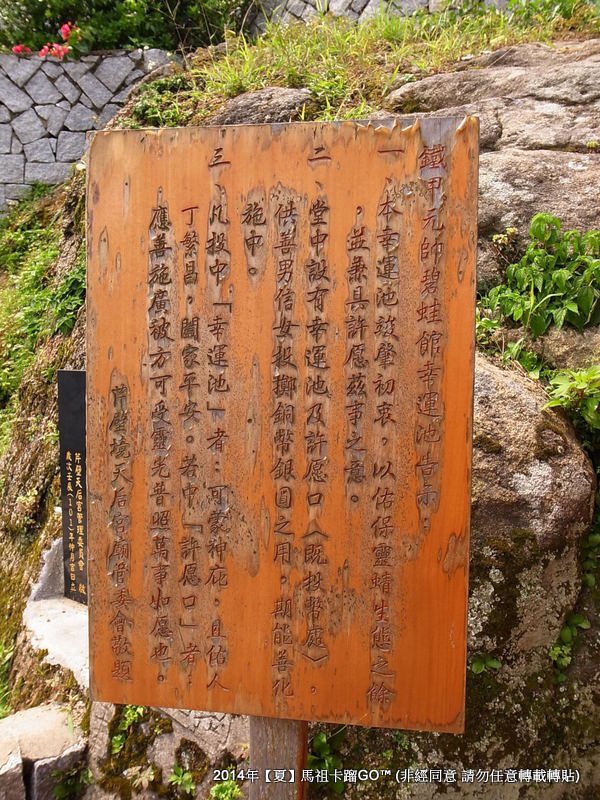 鐵甲元帥碧蛙館幸運池告示：
一、本幸運池設肇初衷，以佑保靈蜻生態之餘
，並兼具許愿茲事之意。
二、堂中設有幸運池及許愿口（既投幣處），
供善男信女投擲銅幣銀圓之用，期能善化
施中。
三、凡投中「幸運池」者：可蒙神庇，且佑人
丁繁昌，闔家平安。若中「許愿口」者：
應善施廣被方可受靈光普照萬事如愿也。
芹壁境天后宮廟管委會敬題
芹壁天后宮管理委員會 啟
歲次壬辰(101)年仲月吉日立
2014年【夏】馬祖卡蹓GO™ (非經同意 請勿任意轉載轉貼)